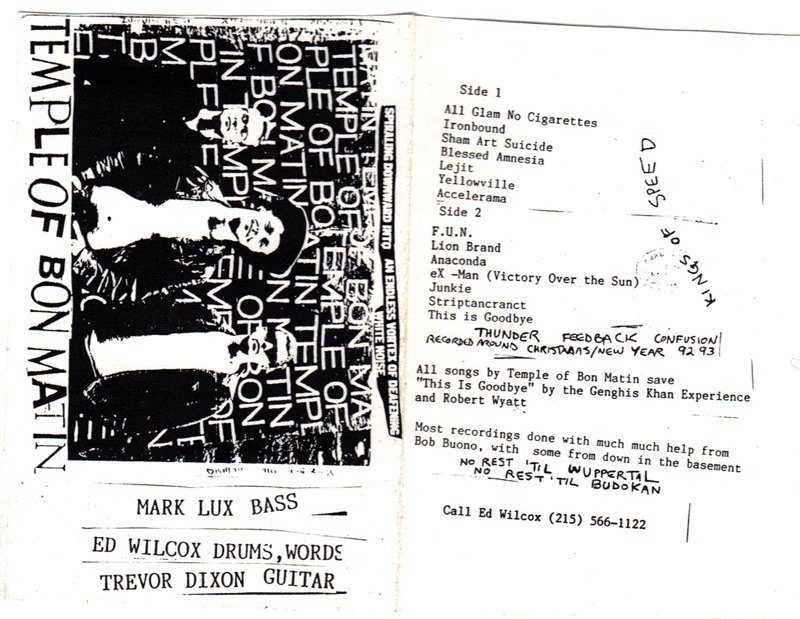 TEMPLE OF BON MATIN
SPIRALING DOWNWARD INTO AN ENDLESS VORTEX OF DEAFENING
WHITE NOISE
MARK LUX BASS
ED WILCOX DRUMS,WORDS
TREVOR DIXON GUITAR
Side 1
All Glam No Cigarettes
Ironbound
Sham Art Suicide
Blessed Amnesia
Lejit
Yellowville
Accelerama
Side 2
F.U.N.
Lion Brand
Anaconda
eX -Man (Victory Over the Sun)
Junkie
Striptancranct
This is Goodbye
KINGS OF SPEED
THUNDER FEEDBACK CONFUSION
RECORDED AROUND CHRISTMAS/NEW YEAR 92 93
All songs by Temple of Bon Matin save
"This Is Goodbye" by the Genghis Khan Experience
and Robert Wyatt
Most recordings done with much much help from
Bob Buono, with some from down in the basement
NO REST 'TIL WUPPERTAL
NO REST 'TIL BUDOKAN
Call Ed Wilcox (215) 566-1122